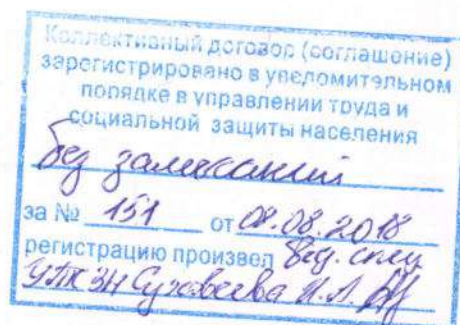 Коллективный договор (соглашение)
зарегистрировано в уведомительном
порядке в управлении труда и
социальной защиты населения
без замечаний
за № 151 от 08.08.2018
регистрацию произвел Вед. спец
УТСЗН Суховеева